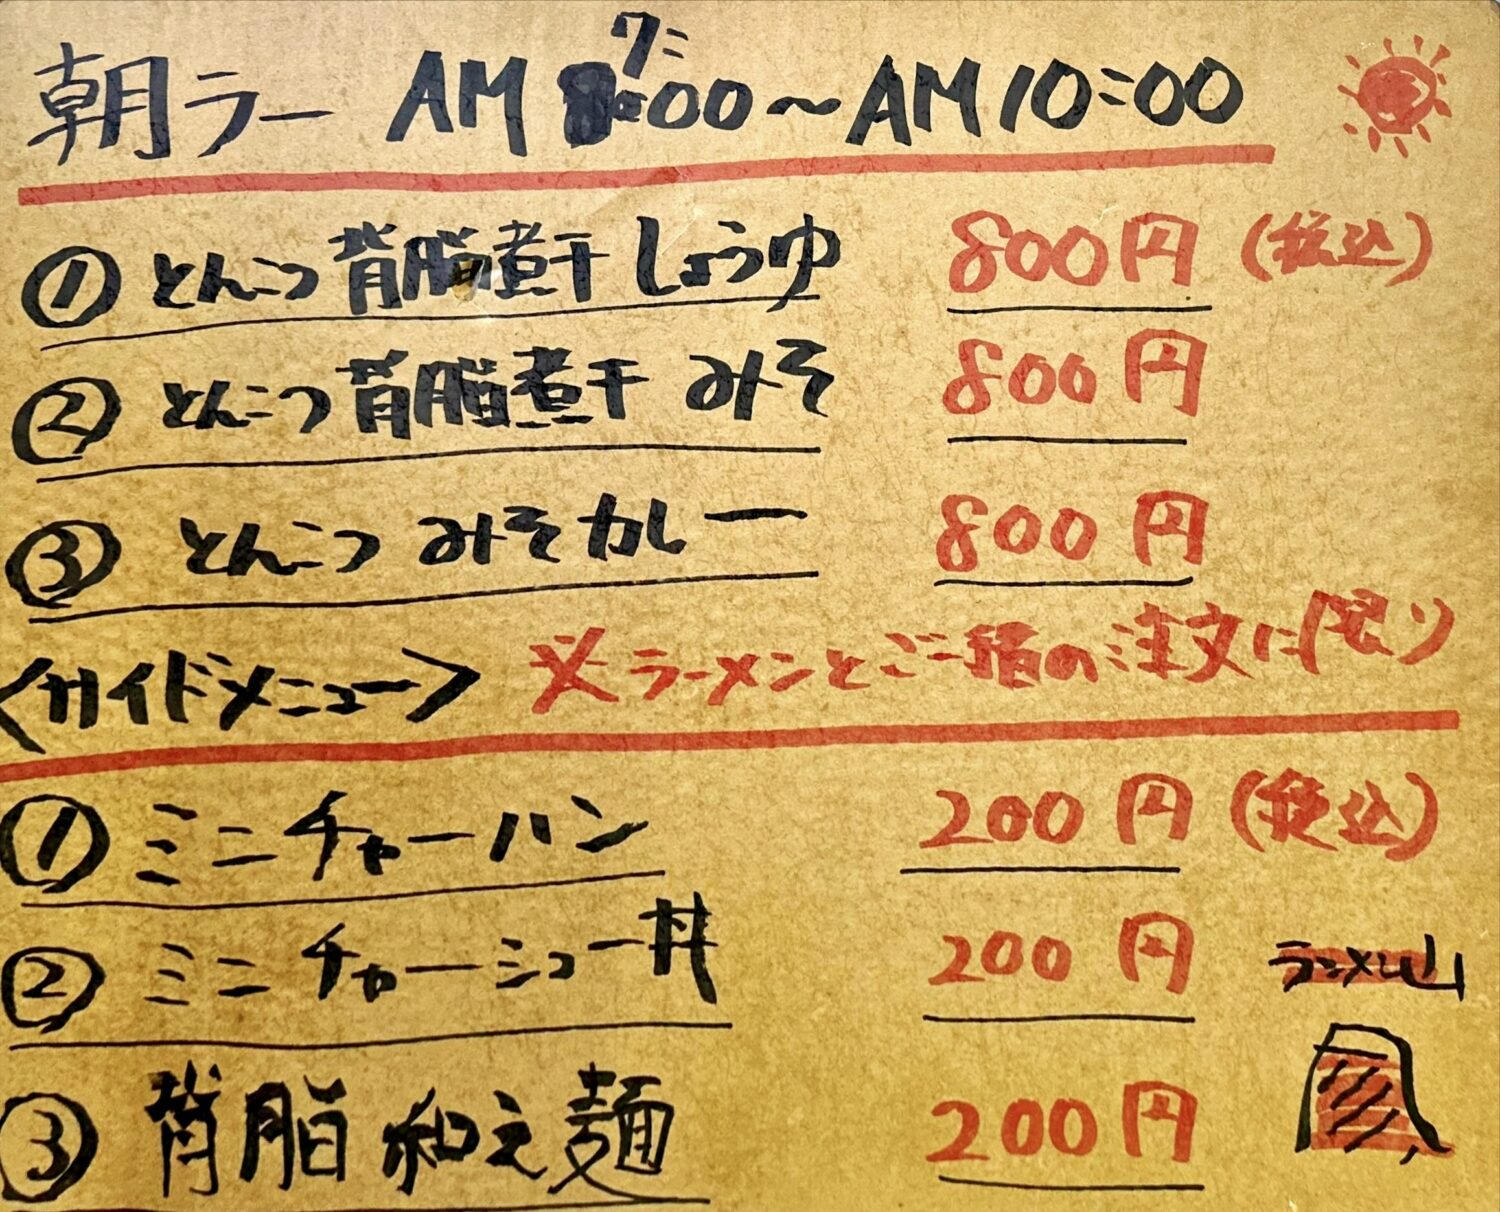 朝ラー AM 7:00〜AM10:00
① とんこつ 背脂煮干 しょうゆ 800円 (税込)
② とんこつ 背脂煮干 みそ 800円
③ とんこつ みそカレー 800円
<サイドメニュー> ※ラーメンとご一緒の注文に限り
① ミニチャーハン 200円 (税込)
② ミニチャーシュー丼 200円
ラーメン山
③ 背脂和え麺 200円